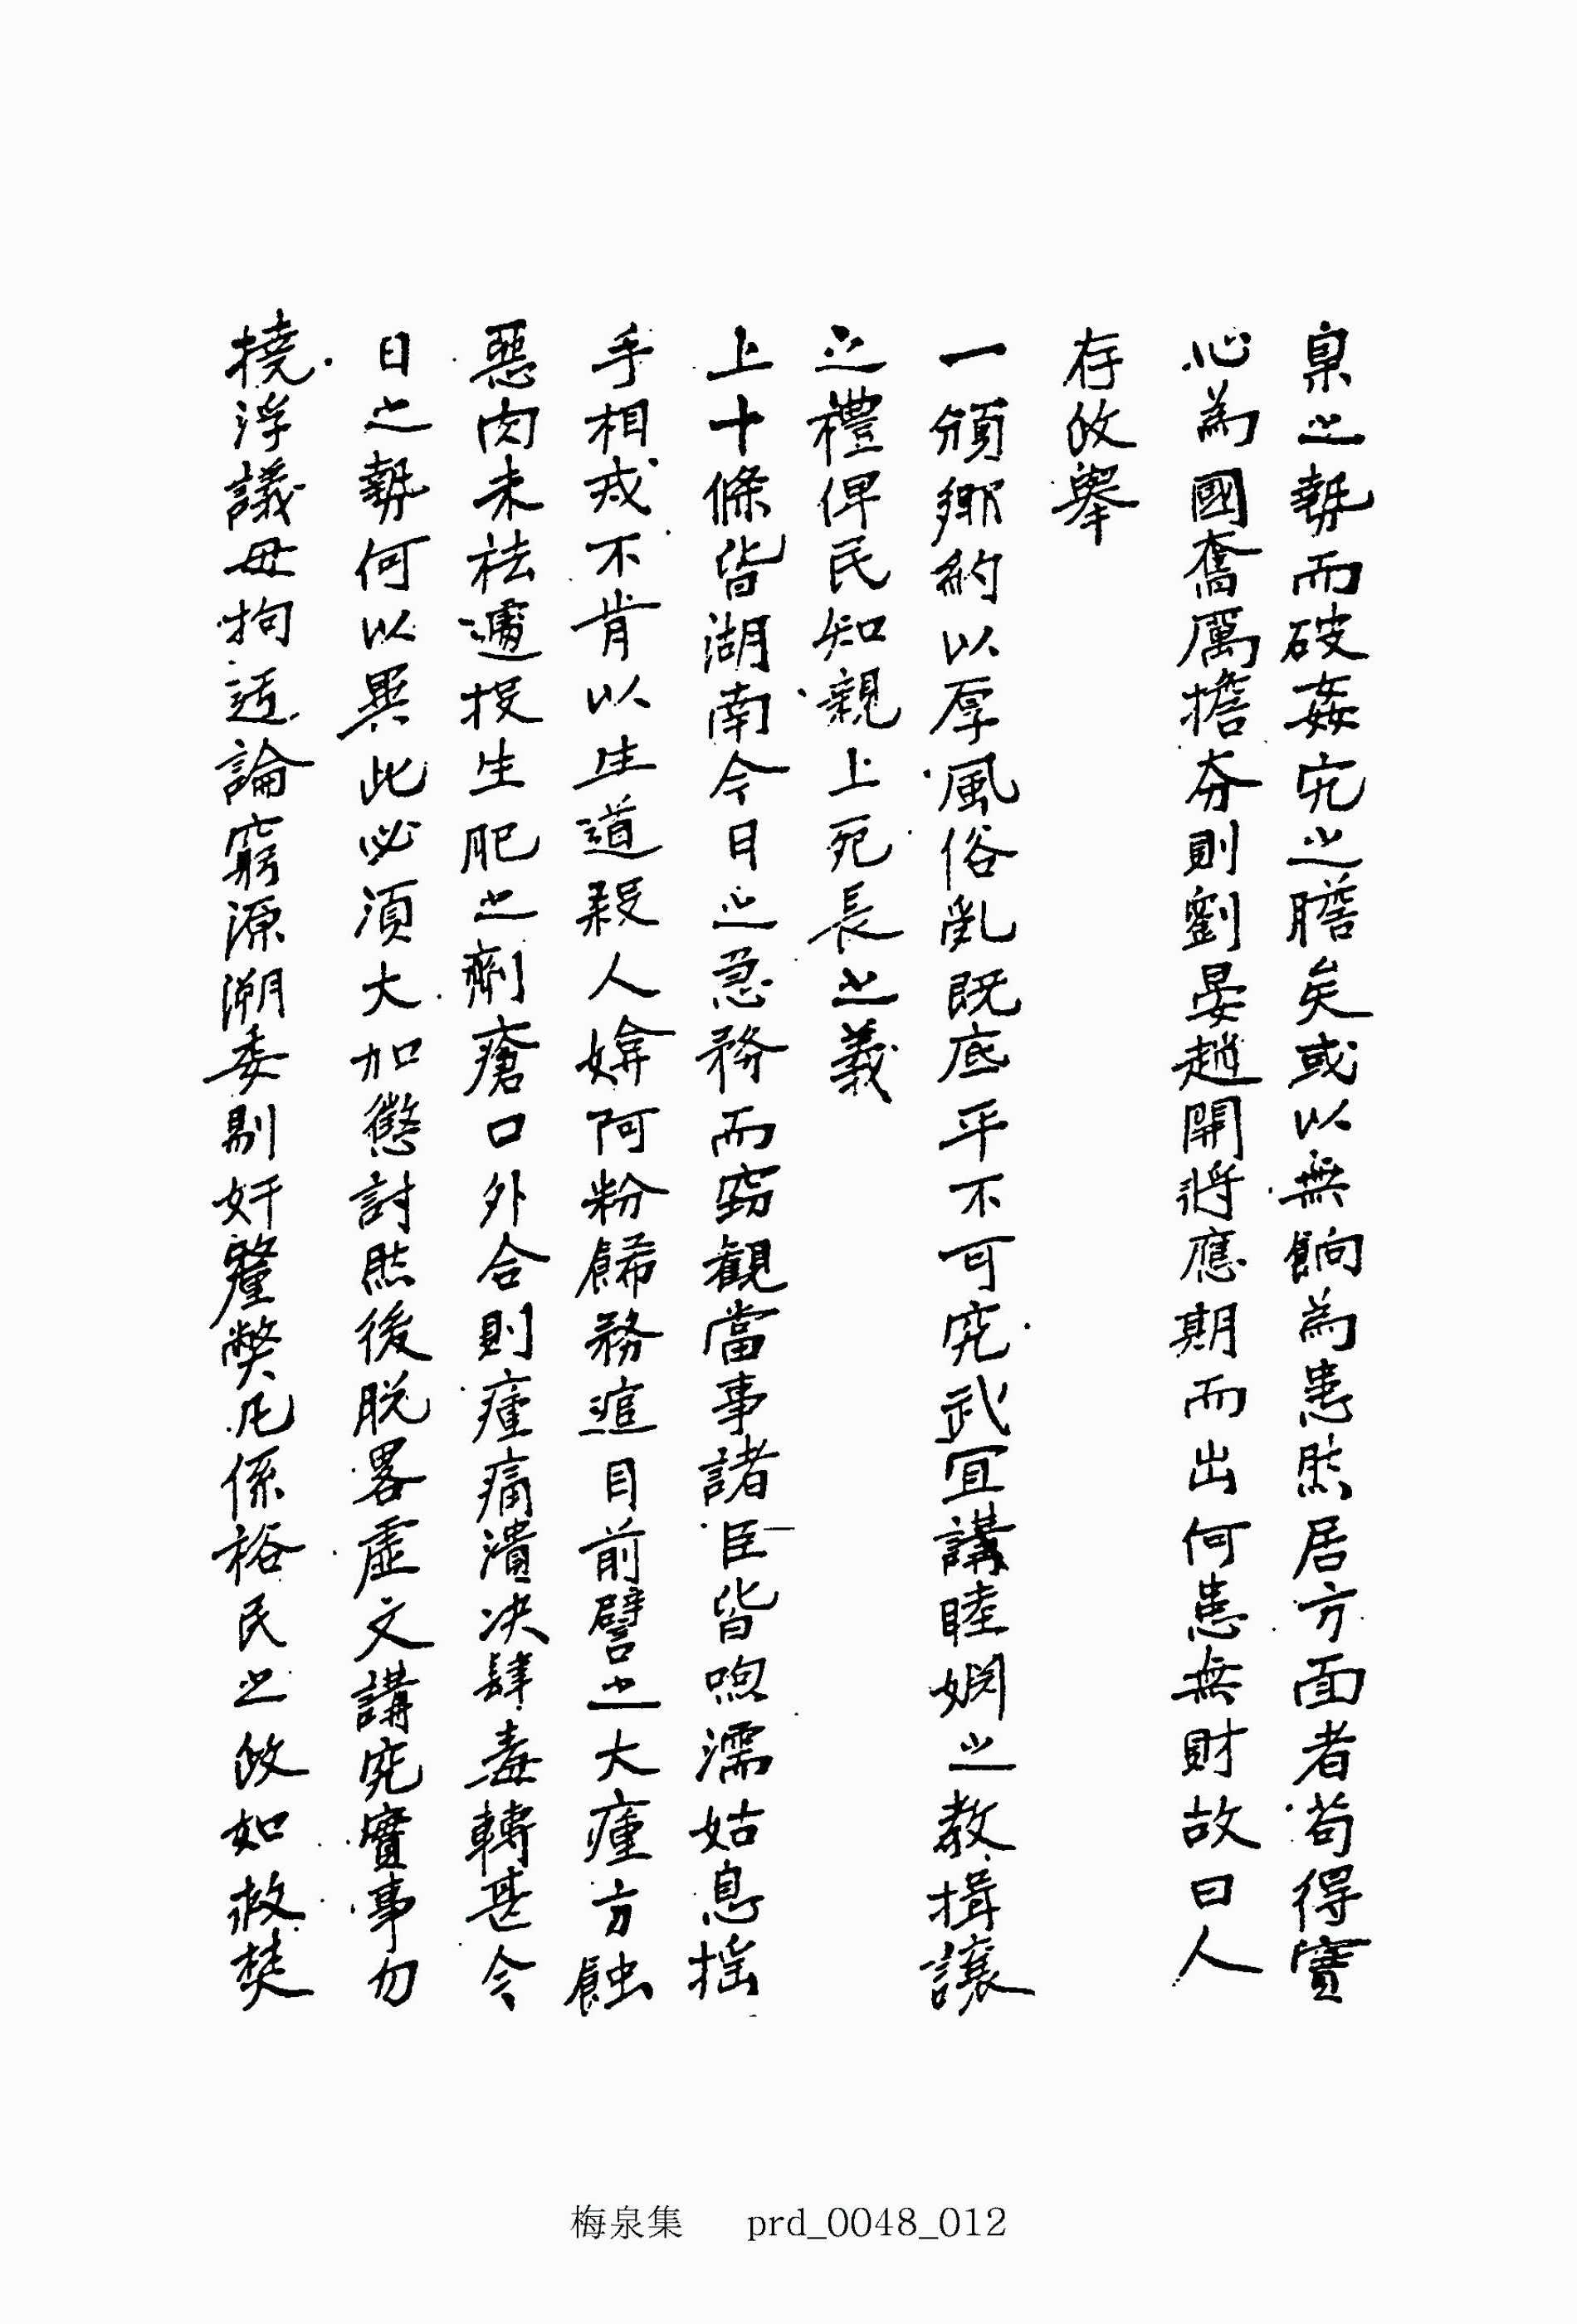 臬之勢而破姦宄之膽矣或以無餉為患然居方面者苟得實
心為國奮厲擔夯則劉晏趙開將應期而出何患無財故曰人
存政舉
一頒鄉約以厚風俗亂既底平不可究武宜講睦婣之教揖讓
之禮俾民知親上死長之義
上十條皆湖南今日之急務而窃觀當事諸臣皆呴濡姑息搖
手相戒不肯以生道殺人媕阿粉餙務逭目前譬之大瘇方蝕
惡肉未祛遽投生肥之劑瘡口外合則瘇痛潰决肆毒轉甚今
日之勢何以異此必須大加懲討然後脱畧虛文講究實事勿
撓浮議毋拘迃論窮源溯委剔奸釐獘凡係裕民之政如救焚